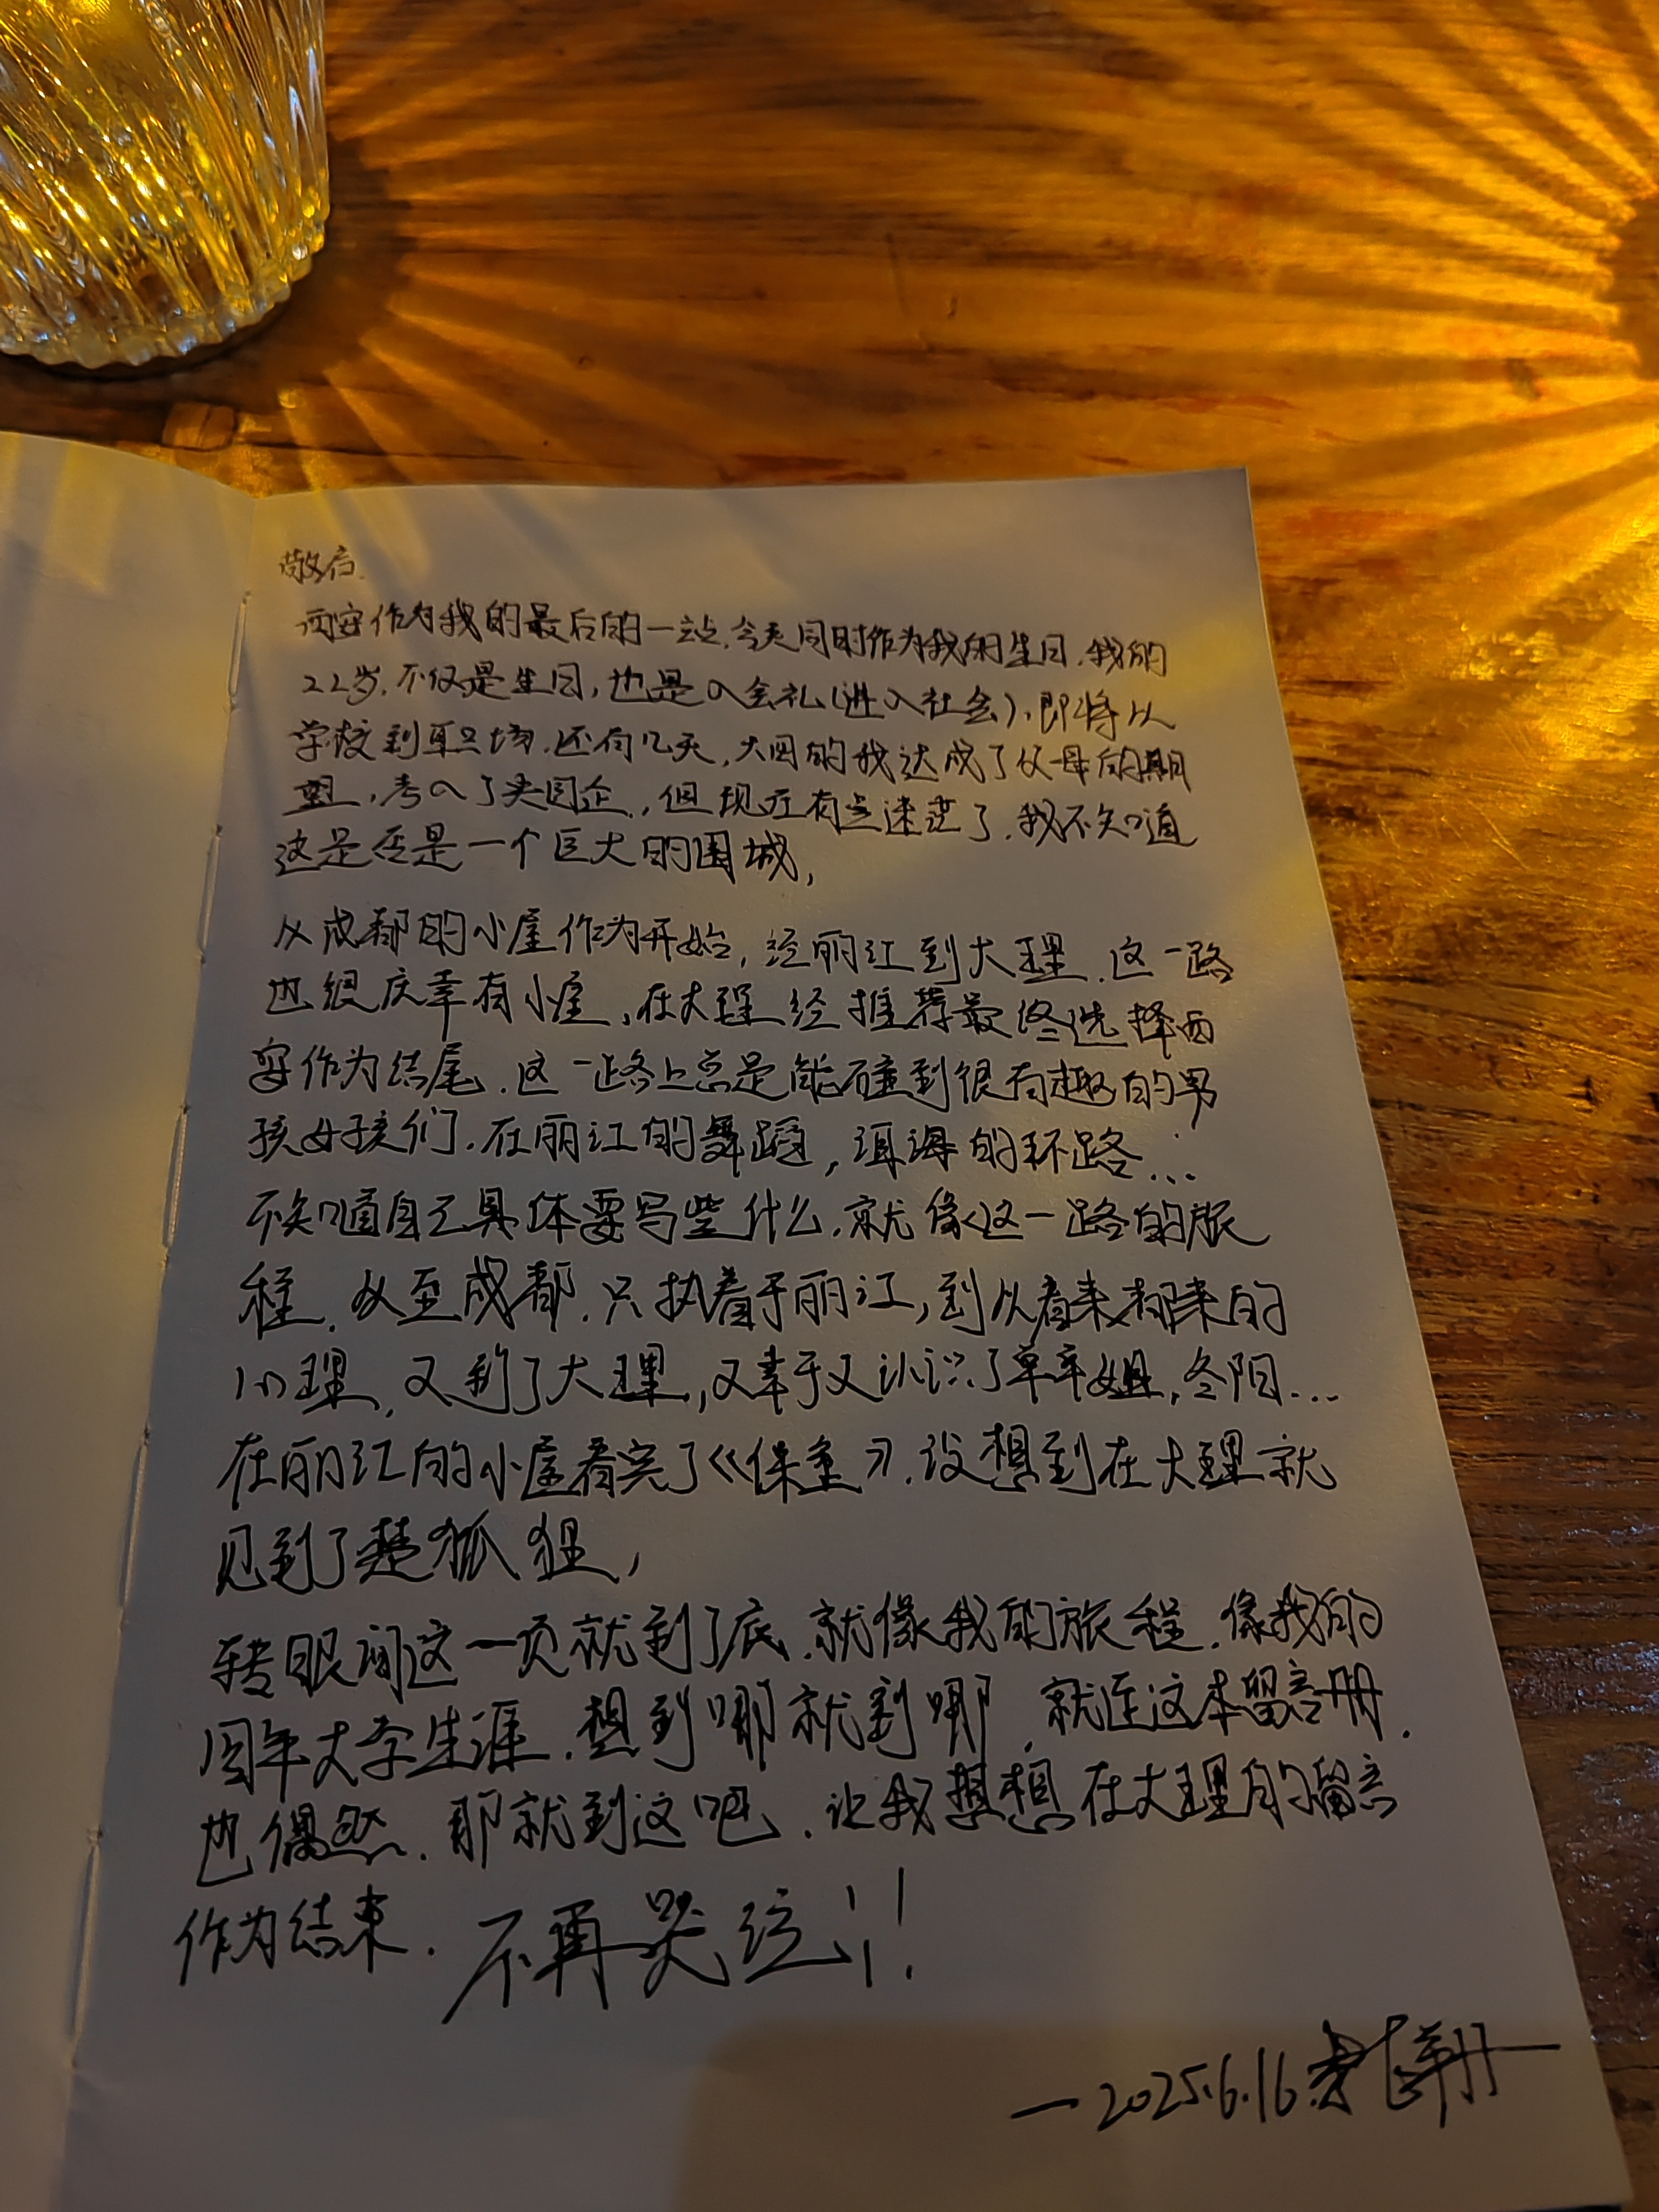 敬启.
西安作为我的最后的一站.今天同时作为我的生日.我的
22岁.不仅是生日,也是入会礼(进入社会),即将从
学校到职场.还有几天,大四的我达成了父母的期
望,考入了央国企,但现在有点迷茫了.我不知道
这是否是一个巨大的围城,
从成都的小屋作为开始,经丽江到大理.这一路
也很庆幸有小屋,在大理经推荐最终选择西
安作为结尾.这一路上总是能碰到很有趣的男
孩女孩们.在丽江的舞蹈,洱海的环路...
不知道自己具体要写些什么.就像这一路的旅
程.从至成都.只执着于丽江,到从着来都来的
心理,又到了大理,又幸于又认识了单辛姐,冬阳...
在丽江的小屋看完了《保重》.没想到在大理就
见到了楚狐狸,
转眼间这一页就到了底.就像我的旅程.像我的
四年大学生涯.想到哪就到哪,就连这本留言册.
也偶然.那就到这吧.让我想想在大理的留言
作为结束.不再哭泣!!
—2025.6.16.